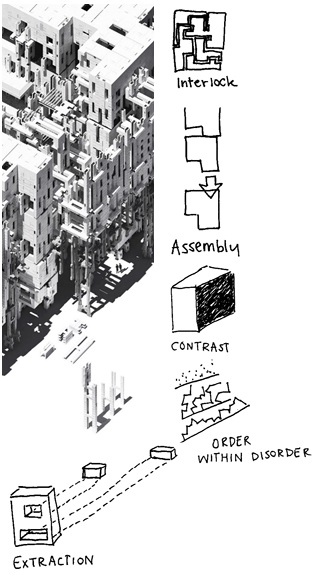 Interlock
Assembly
CONTRAST
ORDER
WITHIN DISORDER
EXTRACTION